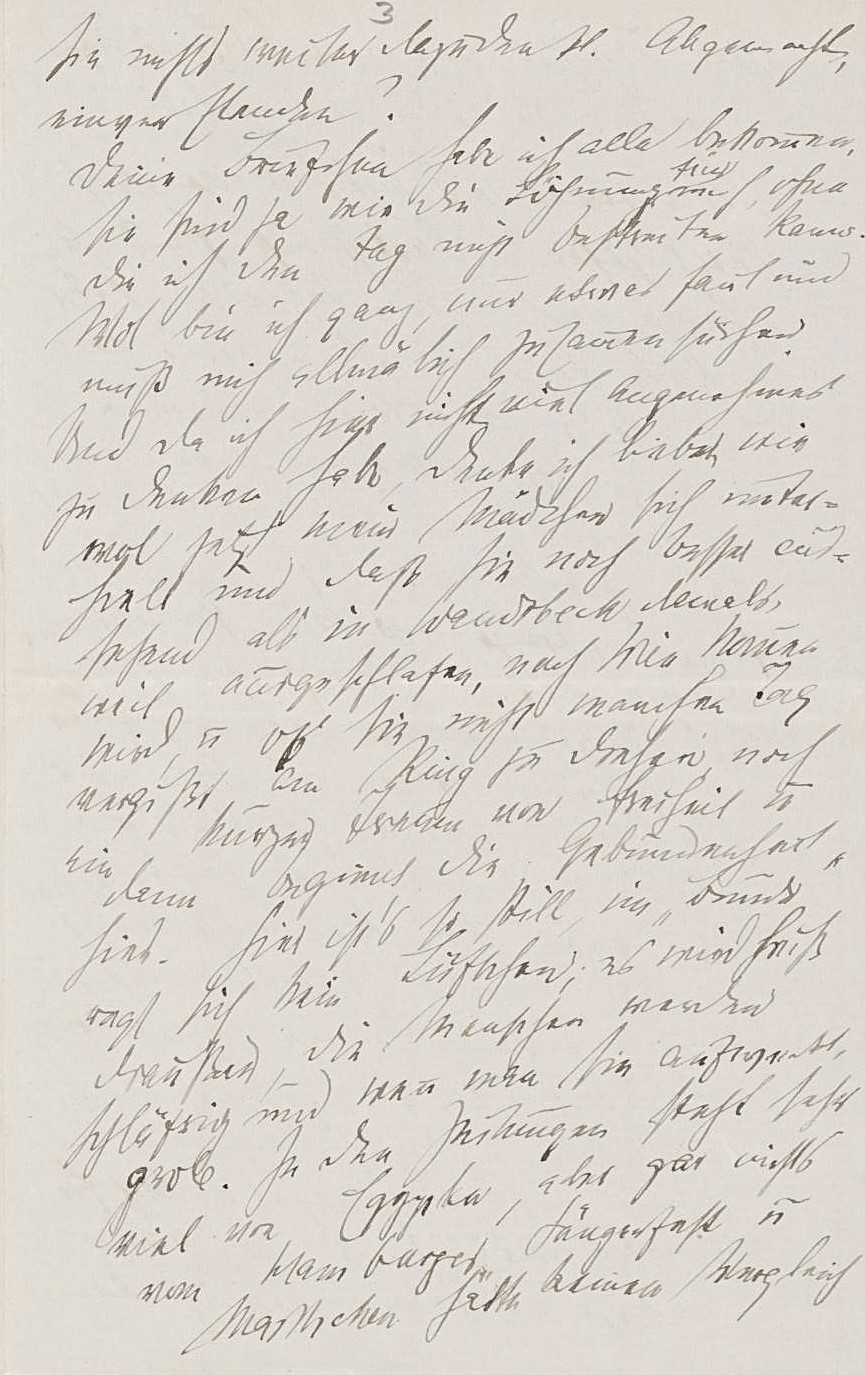 3
Sie nichts weiter dazu den Kl. Abgemacht,
einverstanden?
Deine Briefchen habe ich alle bekommen,
sie sind ja wie die Löhnung für mich, ohne
die ich den Tag nicht bestreiten kann.
Wol bin ich ganz, nur etwas faul und
muß mich allmälich zusammensuchen.
Und da ich hier nicht viel Angenehmes
zu denken habe, denke ich lieber, wie
wol jetzt mein Mädchen sich unter-
hält und daß sie noch besser aus-
sehend als in Wandsbeck damals,
weil ausgeschlafen, nach Wien kommen
wird, u ob sie nicht manchen Tag
vergißt den Ring zu drehen, noch
ein kurzer Traum von Freiheit u
dann beginnt die Gebundenheit
hier. Hier ist's so still, im „Bunde"
regt sich kein Lüftchen, es wird heiß
draußen, die Menschen werden
schläfrig und wenn man sie aufweckt,
grob. In den Zeitungen steht sehr
viel von Egypten, aber gar nichts
vom Hamburger Sängerfest u
Marthchen hätte keinen Vergleich